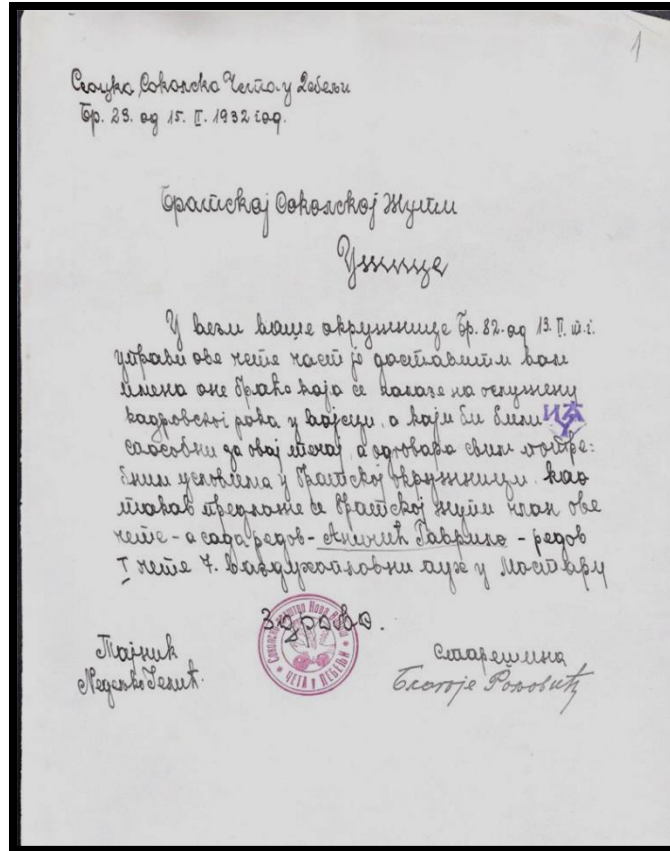 1
Сеоска Соколска Чета у Дебељи
Бр. 23. од 15. II. 1932 год.
Братској Соколској Жупи
Ужице
У вези ваше окружнице Бр. 82. од 13. II. т.г.
управи ове чете част је доставити вам
имена оне браће која се налазе на отслужењу
кадровског рока у војсци, а који би били
способни за овај течај, а одговара свим потре-
бним условима у братској окружници. као
такав предлаже се братској жупи члан ове
чете - а сада редов - Аничић Гаврило - редов
I чете 7. ваздухопловни пук у Мостару
Здраво.
Тајник
Старешина
Недељко
Благоје
ЧЕТА У ДЕБЕЉИ